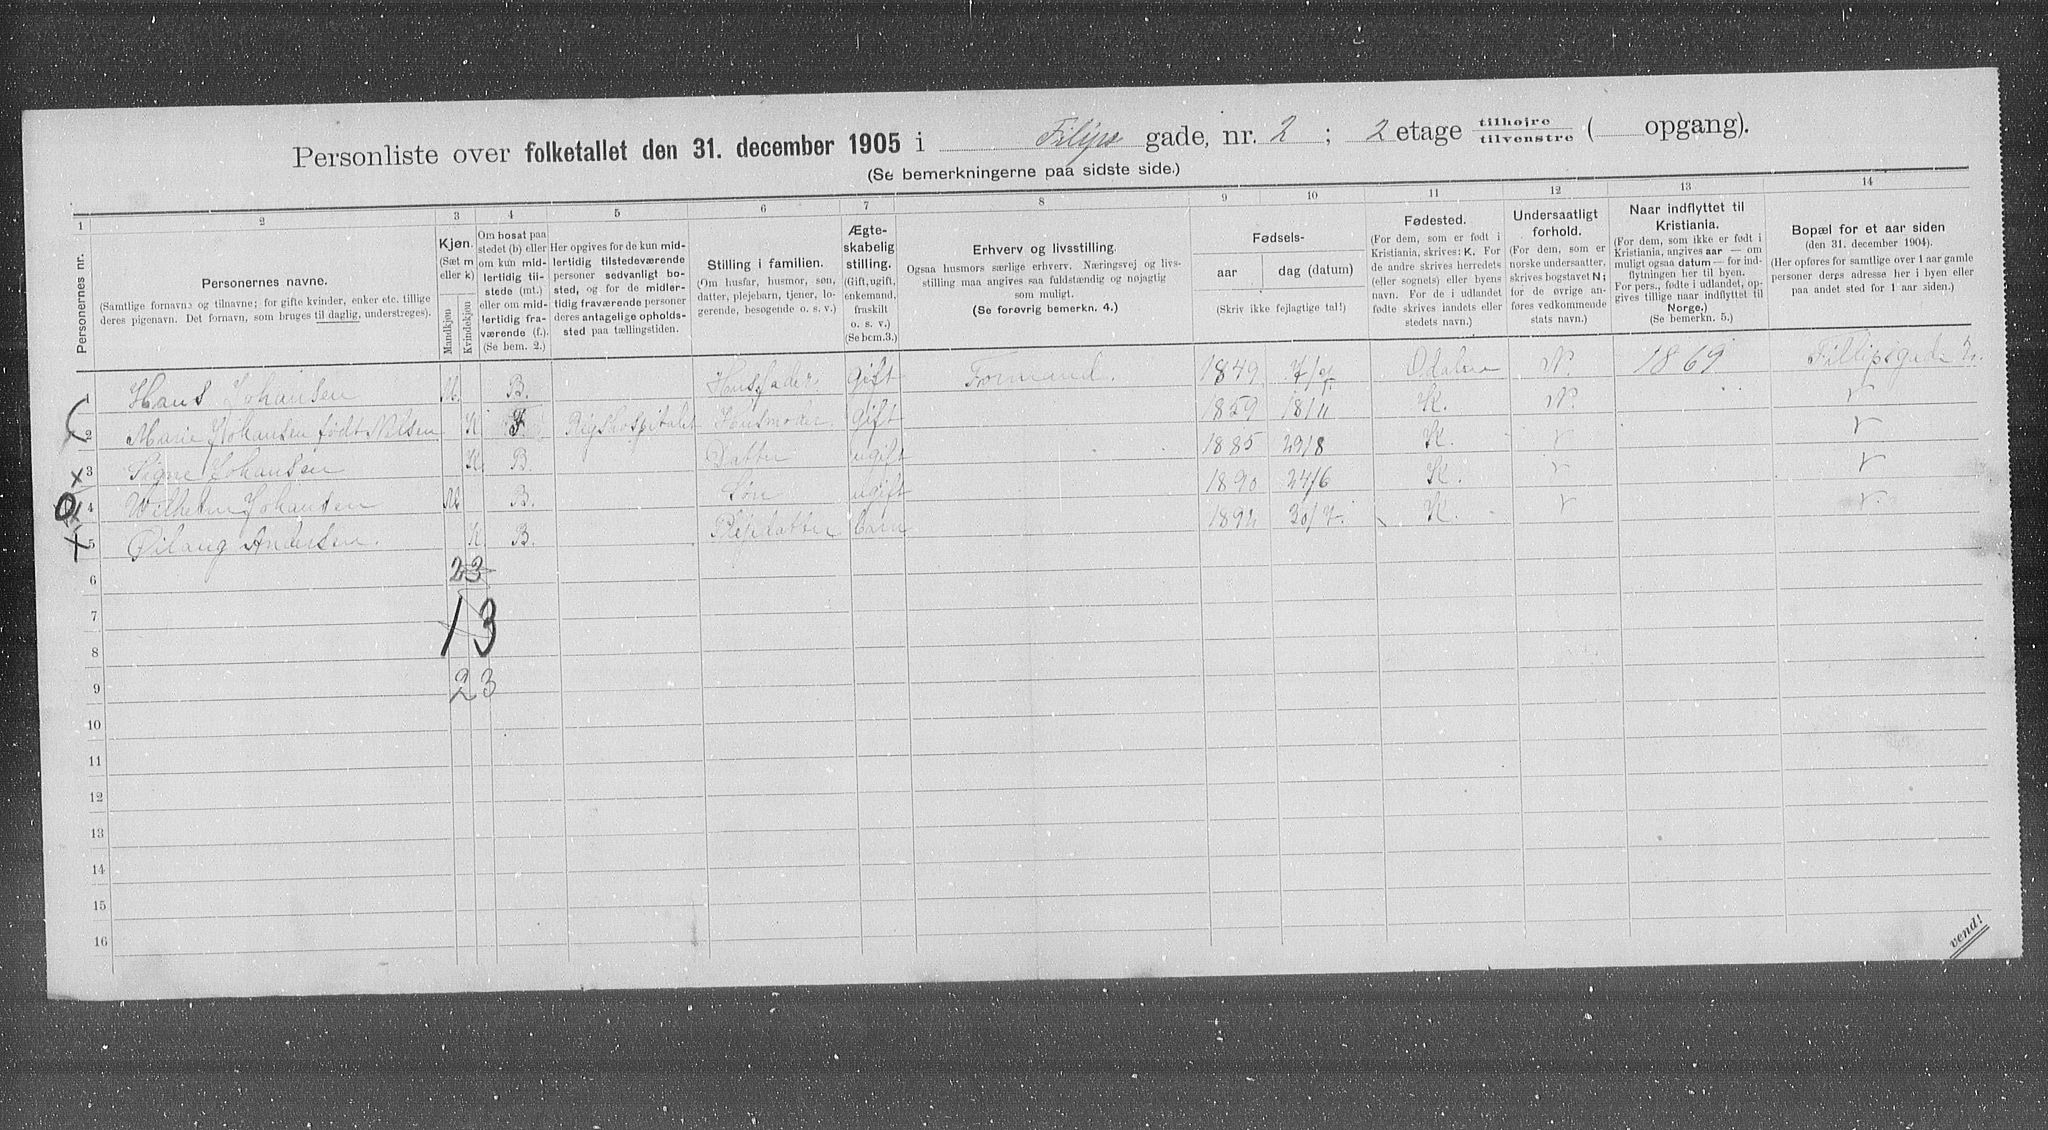 Personliste over folketallet den 31. december 1905 i Filips gade, nr. 2 ; 2 etage tilhøire tilvenstre ( opgang).
(Se bemerkningerne paa sidste side.)
1 2 3 4 5 6 7 8 9 10 11 12 13 14
Personernes nr.
Personernes navne.
(Samtlige fornavne og tilnavne; for gifte kvinder, enker etc. tillige
deres pigenavn. Det fornavn, som bruges til daglig, understreges).
Kjøn.
(Sæt m
eller k)
Mandkjøn
Kvindekjøn
Om bosat paa
stedet (b) eller
om kun mid-
lertidig til-
stede (mt.)
eller om mid-
lertidig fra-
værende (f.).
(Se bem. 2.)
Her opgives for de kun mid-
lertidig tilstedeværende
personer sedvanligt bo-
sted, og for de midler-
tidig fraværende personer
deres antagelige opholds-
sted paa tællingstiden.
Stilling i familien.
(Om husfar, husmor, søn,
datter, plejebarn, tjener, lo-
gerende, besøgende o. s. v.)
Ægte-
skabelig
stilling.
(Gift, ugift,
enkemand,
fraskilt
o. s. v.)
(Se bem.3.)
Erhverv og livsstilling.
Ogsaa husmors særlige erhverv. Næringsvej og livs-
stilling maa angives saa fuldstændig og nøjagtig
som muligt.
(Se forøvrig bemerkn. 4.)
Fødsels-
aar
dag (datum)
(Skriv ikke fejlagtige tal!)
Fødested.
(For dem, som er født i
Kristiania, skrives: K. For
de andre skrives herredets
(eller sognets) eller byens
navn. For de i udlandet
fødte skrives landets eller
stedets navn.)
Undersaatligt
forhold.
(For dem, som er
norske undersaatter,
skrives bogstavet N;
for de øvrige an-
føres vedkommende
stats navn.)
Naar indflyttet til
Kristiania.
(For dem, som ikke er født i
Kristiania, angives aar — om
muligt ogsaa datum — for ind-
flytningen her til byen.
For pers., fødte i udlandet, op-
gives tillige naar indflyttet til
Norge.)
(Se bemerkn. 5.)
Bopæl for et aar siden
(den 31. december 1904).
(Her opføres for samtlige over 1 aar gamle
personer deres adresse her i byen eller
paa andet sted for 1 aar siden.)
1 Hans Johansen M. B. Husfader gift Formand. 1849 Odalen N. 1869 Fillipsgade 2.
2 Marie Johansen født Nilsen K F. Rigshospitalet Husmoder gift 1859 18/11 K. N. "
3 Signe Johansen K. B. Datter ugift 1885 29/8 K. " "
4 Wilhelm Johansen M B. Søn ugift 1890 24/6 K. " "
5 Andersen. K. B. Plejedatter barn 30/7. K. " "
6 23
7 13
8
9 23
10
11
12
13
14
15
16
vend!